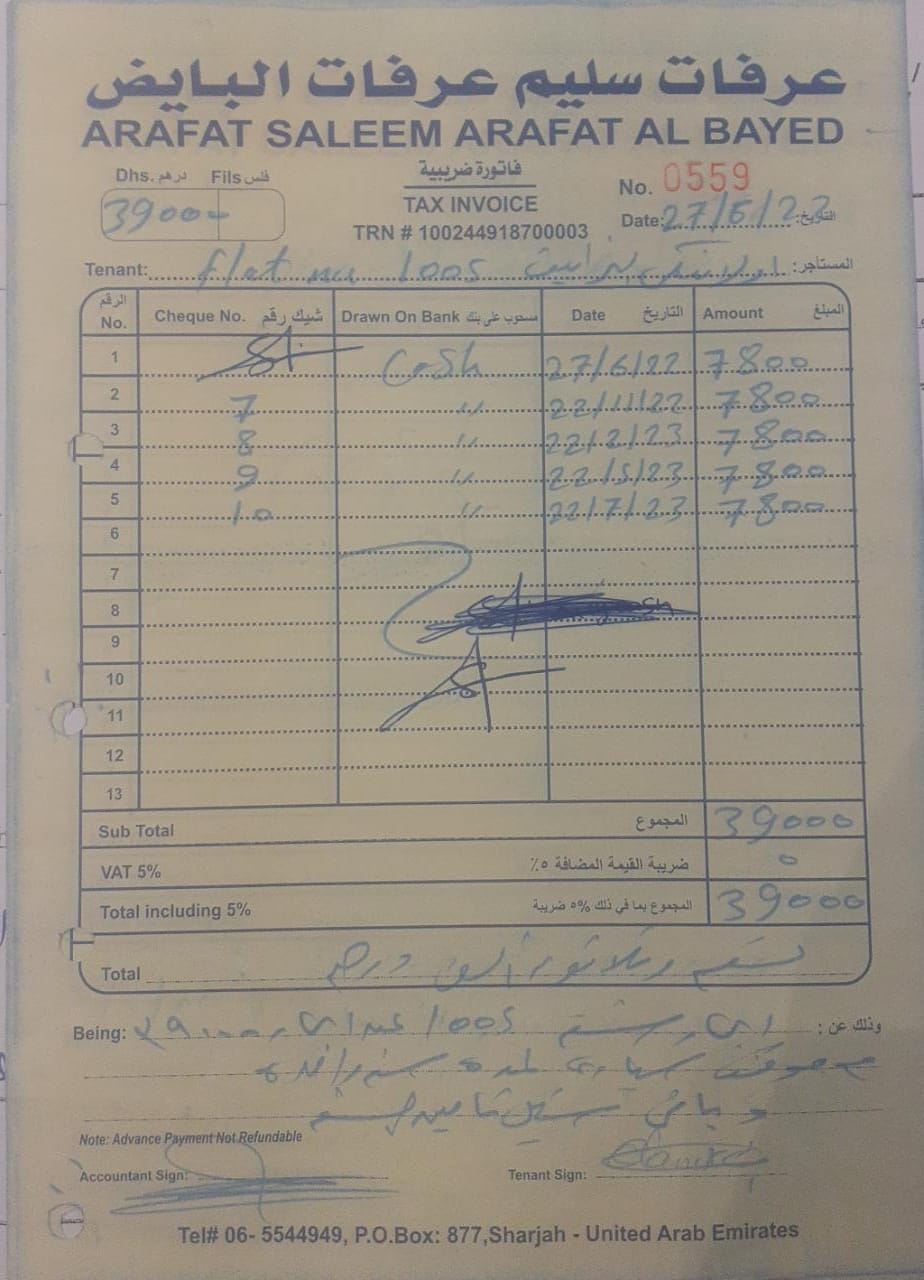 عرفات سليم عرفات البايض
ARAFAT SALEEM ARAFAT AL BAYED
Dhs. درهم Fils فلس
39000 -
فاتورة ضريبية
TAX INVOICE
TRN # 100244918700003
No. 0559
Date: 27/6/22 التاريخ:
Tenant: flat no 1005 المستأجر:
الرقم No. Cheque No. شيك رقم Drawn On Bank مسحوب على بنك Date التاريخ Amount المبلغ
1 Cash 27/6/22 7800
2 7 〃 22/11/22 7800
3 8 〃 22/2/23 7800
4 9 〃 22/5/23 7800
5 10 〃 22/7/23 7800
6
7
8
9
10
11
12
13
Sub Total المجموع 39000
VAT 5% ضريبة القيمة المضافة ٥٪ 0
Total including 5% المجموع بما في ذلك ٥% ضريبة 39000
Total وثلاثون ألف درهم
Being: 1005 وذلك عن :
لمدة سنة
Note: Advance Payment Not Refundable
Accountant Sign:
Tenant Sign:
Tel# 06- 5544949, P.O.Box: 877,Sharjah - United Arab Emirates